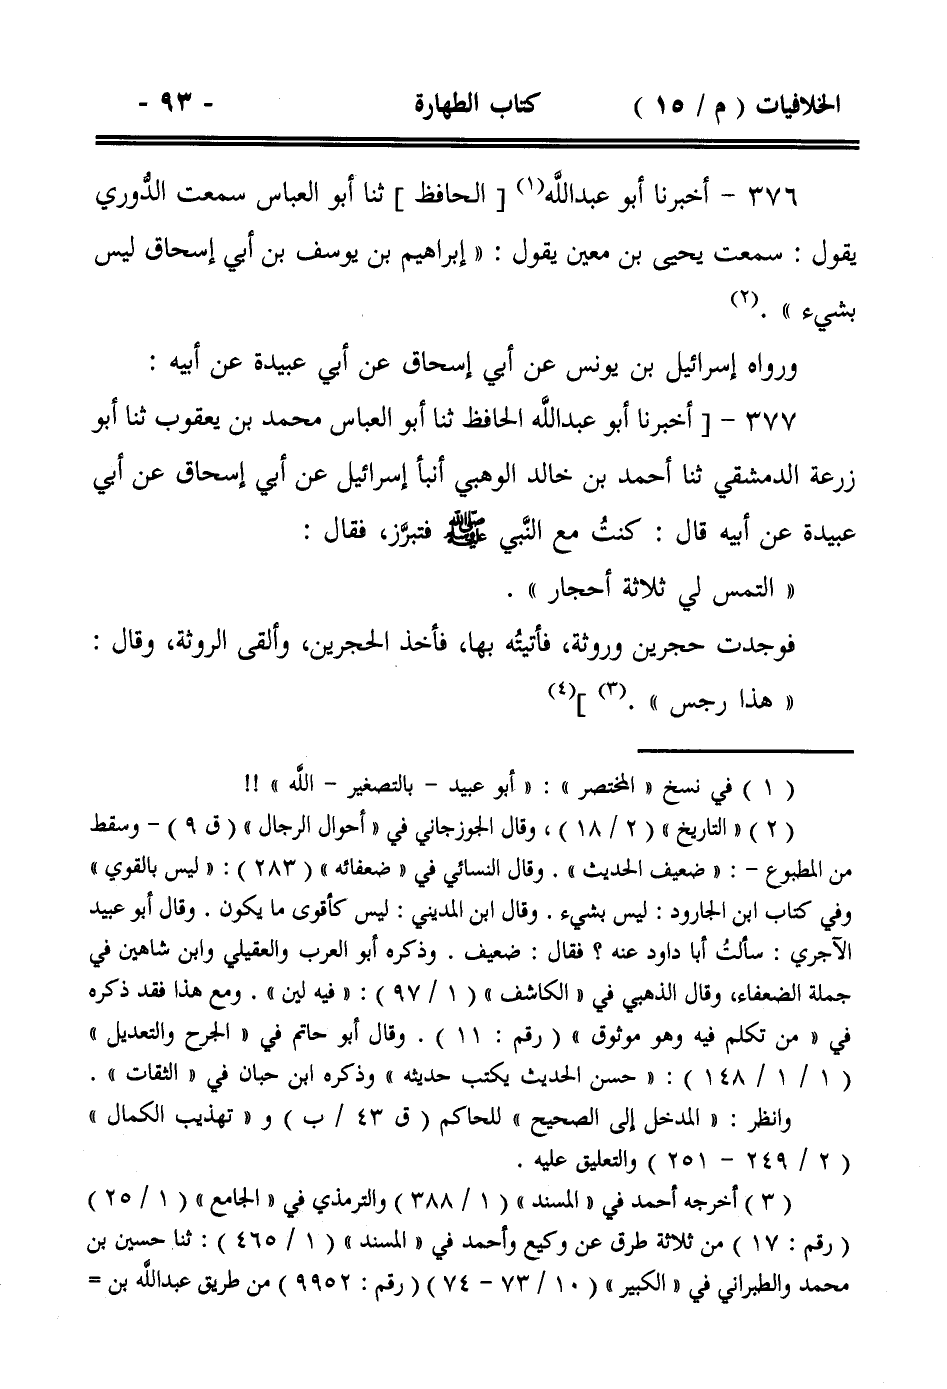 الخلافيات ( م / ١٥ ) كتاب الطهارة - ٩٣ -
٣٧٦ - أخبرنا أبو عبدالله(١) [ الحافظ ] ثنا أبو العباس سمعت الدُّوري
يقول : سمعت يحيى بن معين يقول : « إبراهيم بن يوسف بن أبي إسحاق ليس
بشيء » .(٢)
ورواه إسرائيل بن يونس عن أبي إسحاق عن أبي عبيدة عن أبيه :
٣٧٧ - [ أخبرنا أبو عبدالله الحافظ ثنا أبو العباس محمد بن يعقوب ثنا أبو
زرعة الدمشقي ثنا أحمد بن خالد الوهبي أنبأ إسرائيل عن أبي إسحاق عن أبي
عبيدة عن أبيه قال : كنتُ مع النَّبي ﷺ فتبرَّز، فقال :
« التمس لي ثلاثة أحجار » .
فوجدت حجرين وروثة، فأتيتُه بها، فأخذ الحجرين، وألقى الروثة، وقال :
« هذا رجس » .(٣) ](٤)
( ١ ) في نسخ « المختصر » : « أبو عبيد - بالتصغير - الله » !!
( ٢ ) « التاريخ » ( ٢ / ١٨ ) ، وقال الجوزجاني في « أحوال الرجال » ( ق ٩ ) - وسقط
من المطبوع - : « ضعيف الحديث » . وقال النسائي في « ضعفائه » ( ٢٨٣ ) : « ليس بالقوي »
وفي كتاب ابن الجارود : ليس بشيء . وقال ابن المديني : ليس كأقوى ما يكون . وقال أبو عبيد
الآجري : سألتُ أبا داود عنه ؟ فقال : ضعيف . وذكره أبو العرب والعقيلي وابن شاهين في
جملة الضعفاء، وقال الذهبي في « الكاشف » ( ١ / ٩٧ ) : « فيه لين » . ومع هذا فقد ذكره
في « من تكلم فيه وهو موثوق » ( رقم : ١١ ) . وقال أبو حاتم في « الجرح والتعديل »
( ١ / ١ / ١٤٨ ) : « حسن الحديث يكتب حديثه » وذكره ابن حبان في « الثقات » .
وانظر : « المدخل إلى الصحيح » للحاكم ( ق ٤٣ / ب ) و « تهذيب الكمال »
( ٢ / ٢٤٩ - ٢٥١ ) والتعليق عليه .
( ٣ ) أخرجه أحمد في « المسند » ( ١ / ٣٨٨ ) والترمذي في « الجامع » ( ١ / ٢٥ )
( رقم : ١٧ ) من ثلاثة طرق عن وكيع وأحمد في « المسند » ( ١ / ٤٦٥ ) : ثنا حسين بن
محمد والطبراني في « الكبير » ( ١٠ / ٧٣ - ٧٤ ) ( رقم : ٩٩٥٢ ) من طريق عبدالله بن =